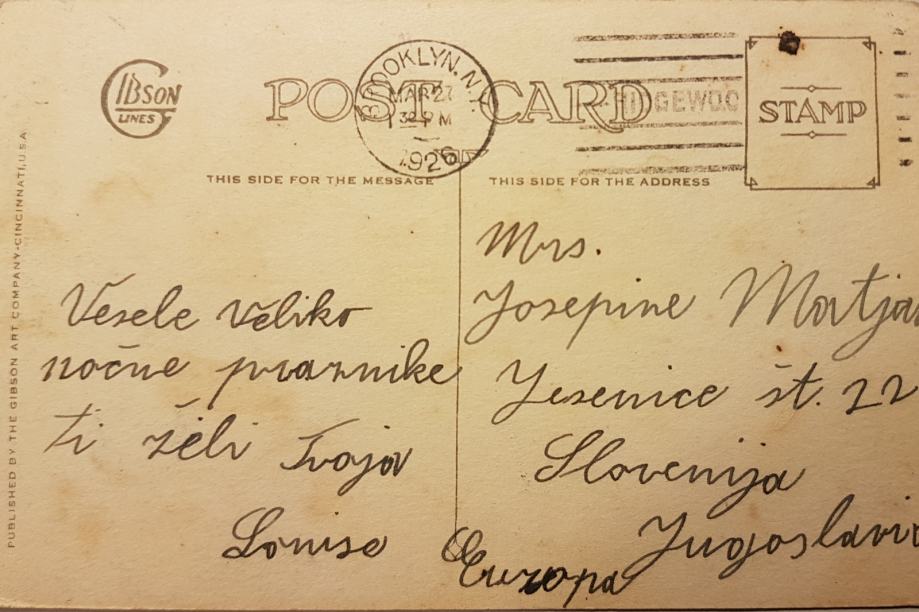 GIBSON
LINES
POST CARD
BROOKLYN, N.Y.
MAR 27
PM
1926
STAMP
THIS SIDE FOR THE MESSAGE
THIS SIDE FOR THE ADDRESS
PUBLISHED BY THE GIBSON ART COMPANY-CINCINNATI, U.S.A.
Vesele veliko
nočne praznike
ti želi Tvoja
Louise
Mrs.
Josepine
Jesenice št. 22
Slovenija
Jugoslavi
Europa